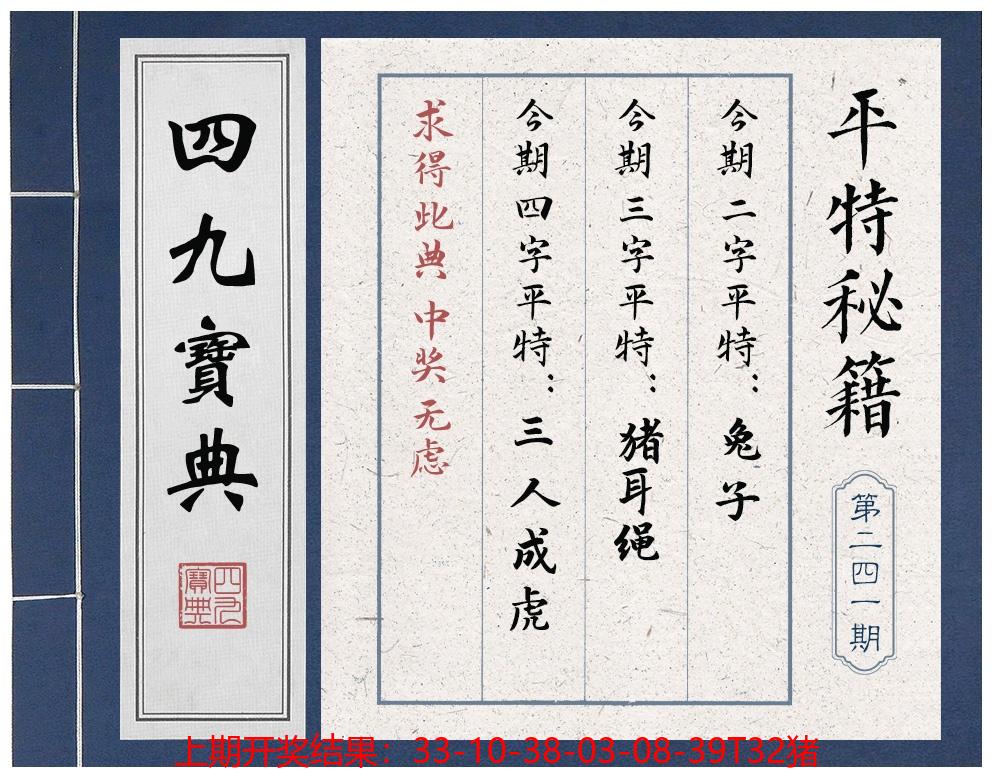 平特秘籍
第二四一期
今期二字平特：兔子
今期三字平特：猪耳绳
今期四字平特：三人成虎
求得此典 中奖无虑
四九寶典
四九寶典
上期开奖结果：33-10-38-03-08-39T32猪